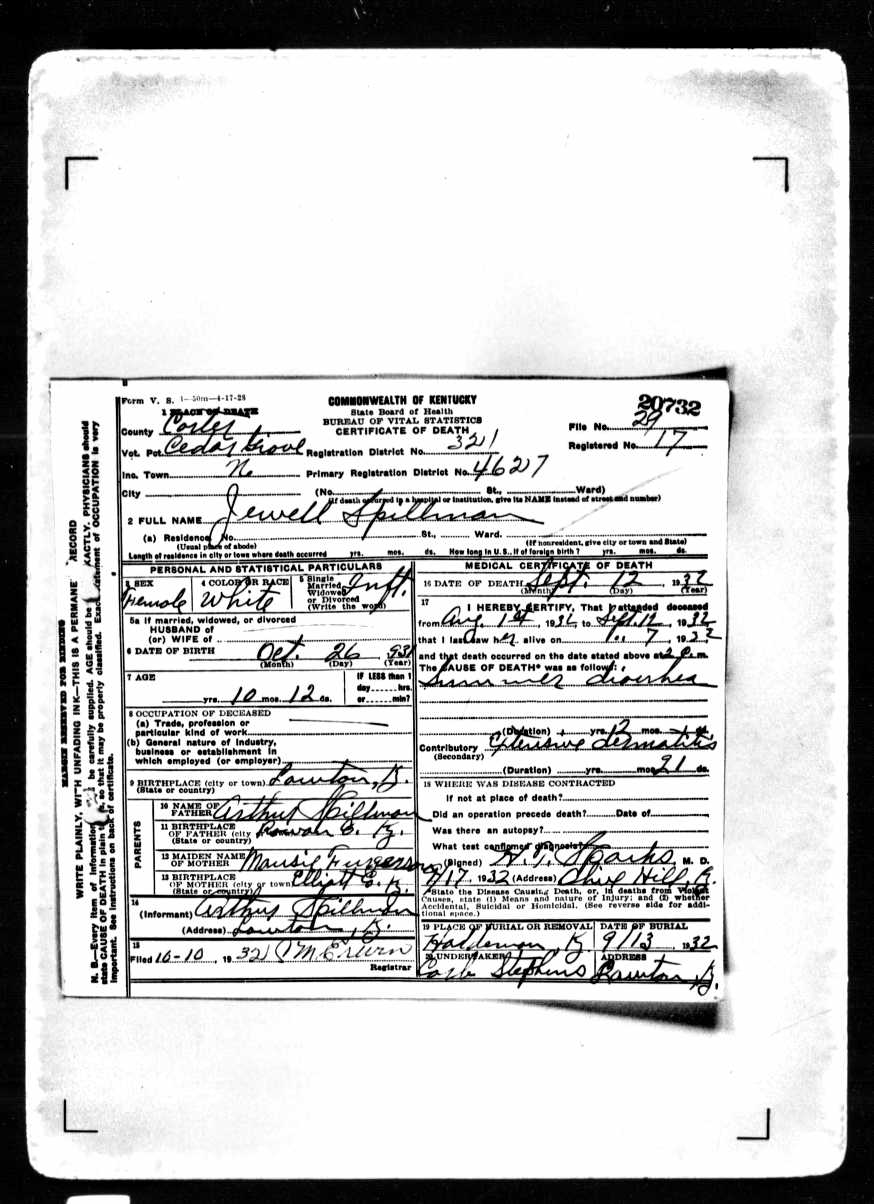 Form V. S. 1—50m—4-17-28
COMMONWEALTH OF KENTUCKY
State Board of Health
BUREAU OF VITAL STATISTICS
CERTIFICATE OF DEATH
20732
File No. 29
Registered No. 17
1 PLACE OF DEATH
County Carter
Vot. Pct. Cedar Grove Registration District No. 321
Inc. Town No Primary Registration District No. 4627
City (No. St., Ward)
(If death occurred in a hospital or institution, give its NAME instead of street and number)
2 FULL NAME Jewell Spillman
(a) Residence No. St., Ward.
(Usual place of abode) (If nonresident, give city or town and State)
Length of residence in city or town where death occurred yrs. mos. ds. How long in U. S., if of foreign birth? yrs. mos. ds.
PERSONAL AND STATISTICAL PARTICULARS
3 SEX Female
4 COLOR OR RACE White
5 Single Married Widowed or Divorced (Write the word) Inft.
5a If married, widowed, or divorced
HUSBAND of
(or) WIFE of
6 DATE OF BIRTH Oct. 26 931
(Month) (Day) (Year)
7 AGE
yrs. 10 mos. 12 ds.
IF LESS than 1
day......hrs.
or......min?
8 OCCUPATION OF DECEASED
(a) Trade, profession or
particular kind of work
(b) General nature of industry,
business or establishment in
which employed (or employer)
9 BIRTHPLACE (city or town) Lawton, Ky.
(State or country)
PARENTS
10 NAME OF FATHER Arthur Spillman
11 BIRTHPLACE OF FATHER (city Rowan C. Ky.
(State or country)
12 MAIDEN NAME OF MOTHER Mausie Furgerson
13 BIRTHPLACE OF MOTHER (city or town Elliott C. Ky.
(State or country)
14
(Informant) Arthur Spillman
(Address) Lawton, Ky.
15
Filed 10-10, 1932
Registrar
MEDICAL CERTIFICATE OF DEATH
16 DATE OF DEATH Sept. 12 1932
(Month) (Day) (Year)
17
I HEREBY CERTIFY, That I attended deceased
from Aug. 1st, 1932, to Sept. 12, 1932
that I last saw her alive on 7, 1932
and that death occurred on the date stated above at 2 P.m.
The CAUSE OF DEATH* was as follows:
Summer diarrhea
(Duration) yrs. 2 mos. ds.
Contributory Extensive dermatitis
(Secondary)
(Duration) yrs. mos. 21 ds.
18 WHERE WAS DISEASE CONTRACTED
If not at place of death?
Did an operation precede death? Date of
Was there an autopsy?
What test confirmed diagnosis?
(Signed) H. T. Sparks, M. D.
9/17 1932 (Address) Olive Hill, Ky.
*State the Disease Causing Death, or, in deaths from Violent
Causes, state (1) Means and nature of Injury; and (2) whether
Accidental, Suicidal or Homicidal. (See reverse side for addi-
tional space.)
19 PLACE OF BURIAL OR REMOVAL Haldeman, Ky
DATE OF BURIAL 9/13, 1932
20 UNDERTAKER Stephens
ADDRESS Lawton, Ky.
MARGIN RESERVED FOR BINDING
WRITE PLAINLY, WITH UNFADING INK—THIS IS A PERMANE RECORD
N. B.—Every item of information be carefully supplied. AGE should be EXACTLY. PHYSICIANS should
state CAUSE OF DEATH in plain so that it may be properly classified. Exact statement of OCCUPATION is very
important. See instructions on back of certificate.